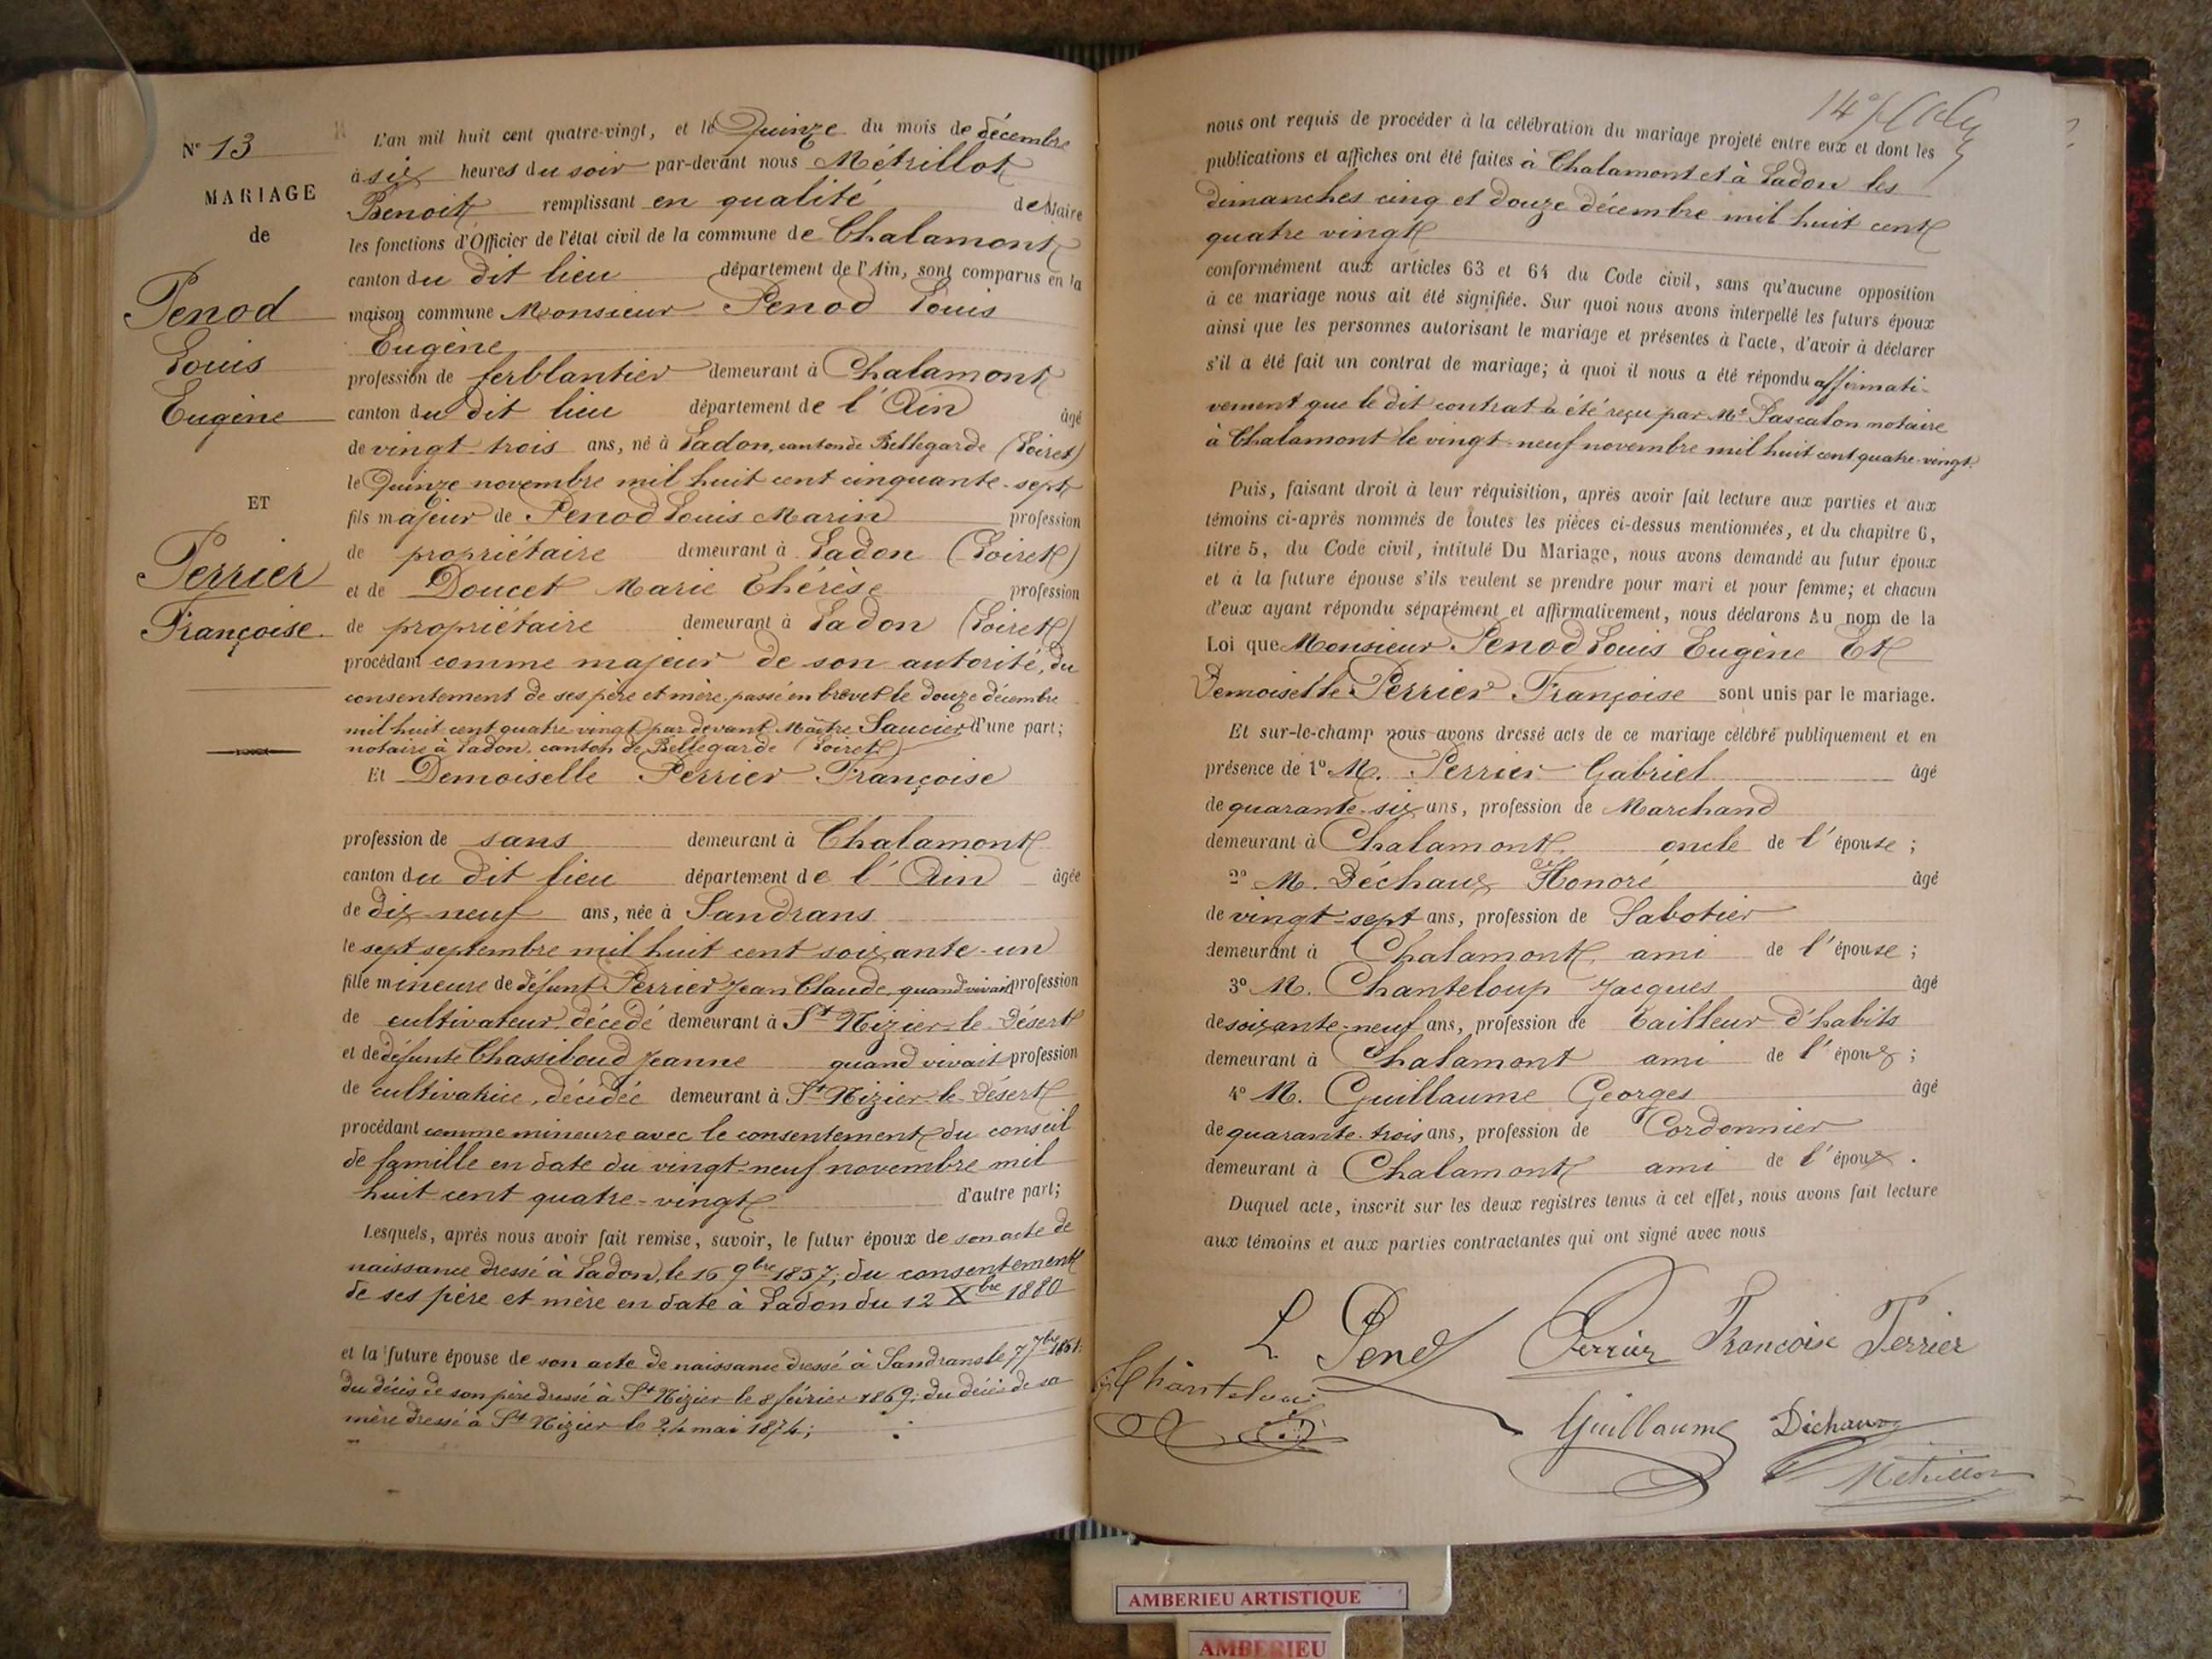 N° 13
MARIAGE
de
Penod
Louis
Eugène
ET
Perrier
Françoise.
L'an mil huit cent quatre-vingt, et le Quinze du mois de décembre
à six heures du soir par-devant nous Métrillot
Benoit remplissant en qualité de Maire
les fonctions d'Officier de l'état civil de la commune de Chalamont
canton du dit lieu département de l'Ain, sont comparus en la
maison commune Monsieur Penod Louis
Eugène
profession de ferblantier demeurant à Chalamont
canton du dit lieu département de l'Ain âgé
de vingt-trois ans, né à Ladon, canton de Bellegarde (Loiret)
le Quinze novembre mil huit cent cinquante-sept
fils majeur de Penod Louis Marin profession
de propriétaire demeurant à Ladon (Loiret)
et de Doucet Marie Thérèse profession
de propriétaire demeurant à Ladon (Loiret)
procédant comme majeur de son autorité, du
consentement de ses père et mère, passé en brevet le douze décembre
mil huit cent quatre vingt par devant Maître Saucier d'une part;
notaire à Ladon, canton de Bellegarde (Loiret)
Et Demoiselle Perrier Françoise
profession de sans demeurant à Chalamont
canton du dit lieu département de l'Ain âgée
de dix-neuf ans, née à Sandrans
le sept septembre mil huit cent soixante-un
fille mineure de défunt Perrier Jean Claude, quand vivait profession
de cultivateur, décédé demeurant à St Nizier-le-Désert
et de défunte Chassiboud Jeanne quand vivait profession
de cultivatrice, décédée demeurant à St Nizier-le-Désert
procédant comme mineure avec le consentement du conseil
de famille en date du vingt-neuf novembre mil
huit cent quatre-vingt d'autre part;
Lesquels, après nous avoir fait remise, savoir, le futur époux de son acte de
naissance dressé à Ladon, le 16 9bre 1857; du consentement
de ses père et mère en date à Ladon du 12 Xbre 1880
et la future épouse de son acte de naissance dressé à Sandrans le 7 7bre 1861;
du décès de son père dressé à St Nizier le 8 février 1869; du décès de sa
mère dressé à St Nizier le 24 mai 1874;
nous ont requis de procéder à la célébration du mariage projeté entre eux et dont les
publications et affiches ont été faites à Chalamont et à Ladon les
dimanches cinq et douze décembre mil huit cent
quatre vingt
conformément aux articles 63 et 64 du Code civil, sans qu'aucune opposition
à ce mariage nous ait été signifiée. Sur quoi nous avons interpellé les futurs époux
ainsi que les personnes autorisant le mariage et présentes à l'acte, d'avoir à déclarer
s'il a été fait un contrat de mariage; à quoi il nous a été répondu affirmati-
vement que le dit contrat a été reçu par Me Pascalon notaire
à Chalamont le vingt-neuf novembre mil huit cent quatre-vingt.
Puis, faisant droit à leur réquisition, après avoir fait lecture aux parties et aux
témoins ci-après nommés de toutes les pièces ci-dessus mentionnées, et du chapitre 6,
titre 5, du Code civil, intitulé Du Mariage, nous avons demandé au futur époux
et à la future épouse s'ils veulent se prendre pour mari et pour femme; et chacun
d'eux ayant répondu séparément et affirmativement, nous déclarons Au nom de la
Loi que Monsieur Penod Louis Eugène Et
Demoiselle Perrier Françoise sont unis par le mariage.
Et sur-le-champ nous avons dressé acte de ce mariage célébré publiquement et en
présence de 1° M. Perrier Gabriel âgé
de quarante-six ans, profession de Marchand
demeurant à Chalamont, oncle de l'épouse;
2° M. Déchaux Honoré âgé
de vingt-sept ans, profession de Sabotier
demeurant à Chalamont, ami de l'épouse;
3° M. Chanteloup Jacques âgé
de soixante-neuf ans, profession de tailleur d'habits
demeurant à Chalamont ami de l'époux;
4° M. Guillaume Georges âgé
de quarante-trois ans, profession de Cordonnier
demeurant à Chalamont ami de l'époux.
Duquel acte, inscrit sur les deux registres tenus à cet effet, nous avons fait lecture
aux témoins et aux parties contractantes qui ont signé avec nous
L Penod Perrier Francoise Perrier
Chanteloup
Guillaume Déchaux
Métrillot
AMBERIEU ARTISTIQUE
AMBERIEU